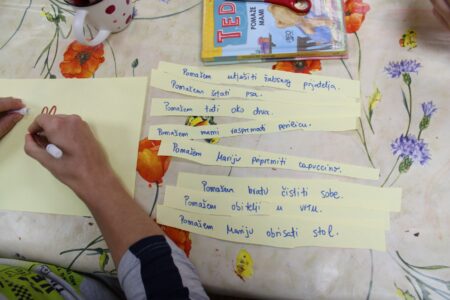 TED
POMAŽE
MAMI
Pomažem utješiti žalosnog prijatelja.
Pomažem šetati psa.
Pomažem tati oko drva.
Pomažem mami raspremati perilicu.
Pomažem Mariju pripremiti cappuccino.
Pomažem bratu čistiti sobe.
Pomažem obitelji u vrtu.
Pomažem Mariju obrisati stol.